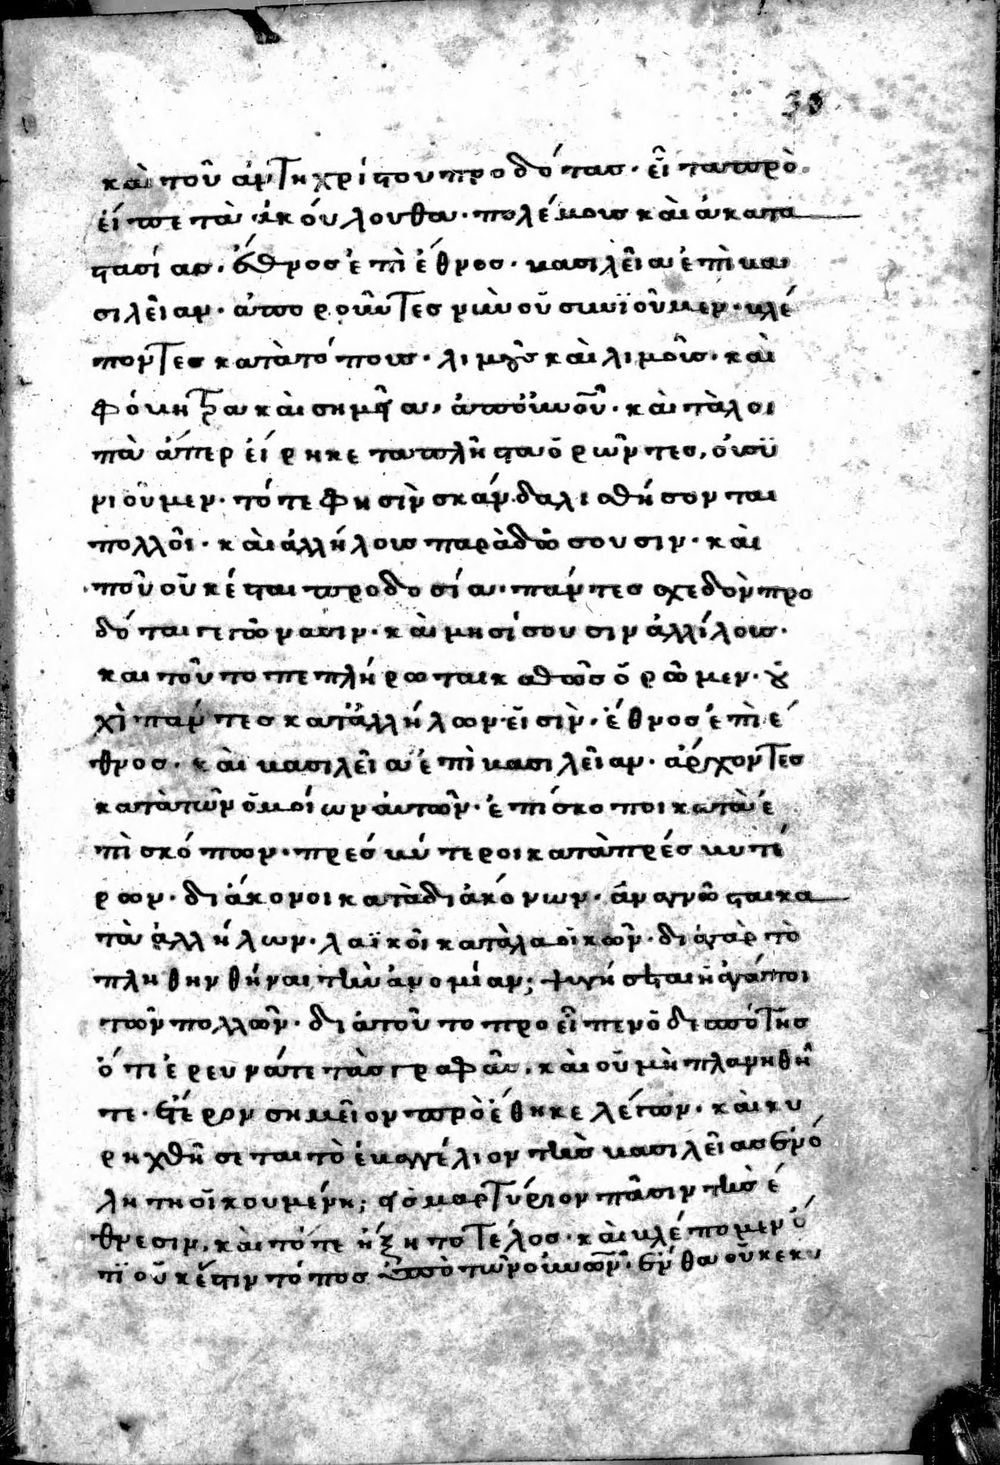 38
καὶ τοῦ ἀντηχρίστου προδότας· εἶ τα πρὸ
εί τσε τὰ ἀκόυλουθα· πολέμοις καὶ ἀκατα
στασίας· ἔθνος ἐπὶ ἔθνος· βασιλεῖα ἐπὶ βα
σιλεῖαν· ἀπορουντες νῦν οὐ συνϊοῦμεν· βλέ
ποντες κατὰ τόποις· λιμοὺς καὶ λιμοῖς· καὶ
φόβητρα καὶ σημεῖα, ἀπο οὐνοῦ· καὶ πάλοι
πὰ ἅπερ είρηκε ταπλῆστα ὁρῶντες, οὐσϋ
νιοῦμεν· τότε φησὶν σκάνδαλισθήσονται
πολλοῖ· καὶ ἀλλήλοις παρὰδώσουσιν· καὶ
ποῦ οὐκέσται προδοσία· πάντες σχεδὸν προ
δόται γεγόνασιν· καὶ μησίσουσιν ἀλλίλοις·
και τοῦτο πεπλήρωται καθὼς ὁρῶμεν· οὐ
χὶ πάντες κατἀλλήλων εἰσὶν· ἔθνος ἐπὶ ἔ
θνος· καὶ βασιλεῖα ἐπὶ βασιλεῖαν· ἀρχοντες
κατὰ τῶν ὁμοίων ἀυτῶν· ἐπίσκοποι κατὰ ἐ
πὶσκόπων· πρεσβύτεροι κατὰ πρέσβυτέ
ρων· διάκονοι κατὰ διακόνων· ἀναγνῶσται κα
τὰ ἀλλήλων· λαϊκοῖ κατὰ λαοϊκῶν· διάγὰρ τὸ
πληθηνθήναι τὴν ἀνομίαν; ψυγήσεται ἡ ἀγάποι
τῶν πολλῶν· διάτοῦτο προεῖπεν ὁ δεσπότης
ὅτι ἐρευνάτε τὰς γραφὰς, καὶ οὐ μὴ πλανηθῆ
τε· ἕτερον σημεῖον προέθηκε λέγων· καὶ κυ
ρηχθῆσεται τὸ ἐυαγγέλιον τῆς βασιλεῖας ἐν ὅ
λη τη οἰκουμένη; εἰς μαρτύριον πᾶσιν τῆς ἔ
θνεσιν, καὶ τότε ἥξη το τέλος· καὶ βλέπομεν ὅ
τϊ οὐκέστιν τόπος ὑπὸ τὼν οὐνῶν· ἔνθα οὐκεκυ